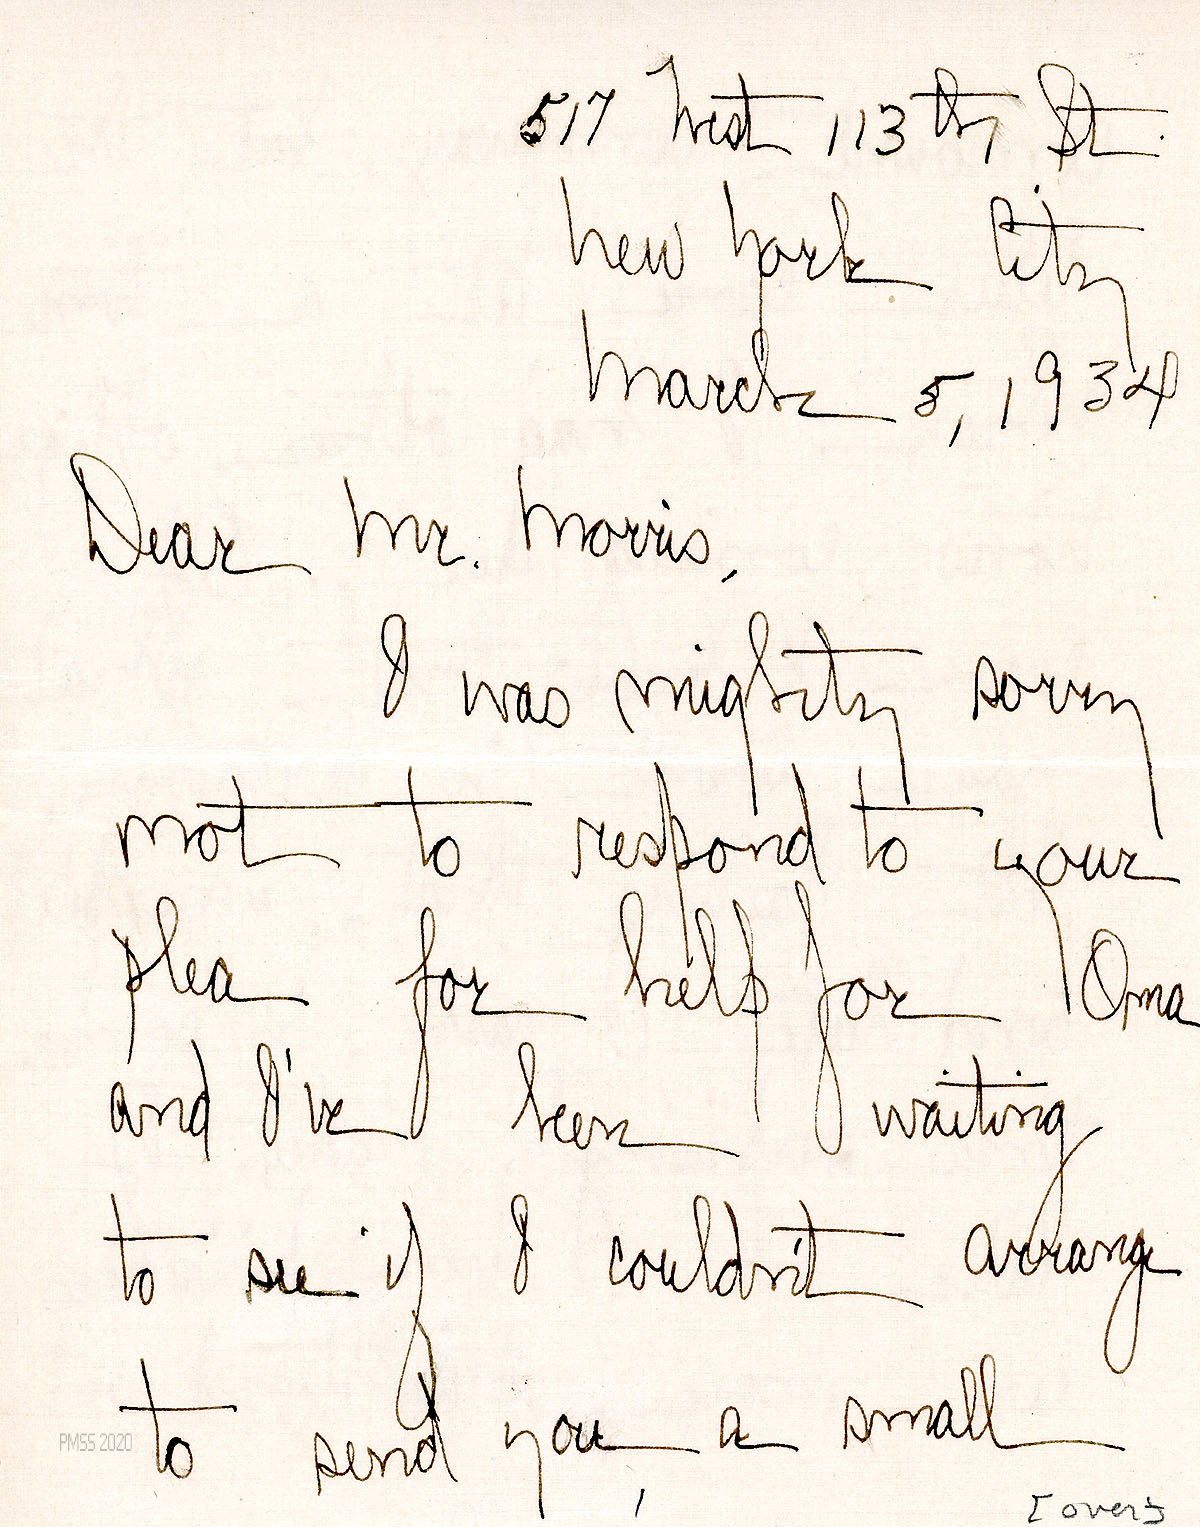 517 West 113th St.
New York City
March 5, 1934
Dear Mr. Morris,
I was mighty sorry
not to respond to your
plea for help for Oma
and I've been waiting
to see if I couldn't arrange
to send you a small
PMSS 2020
[over]